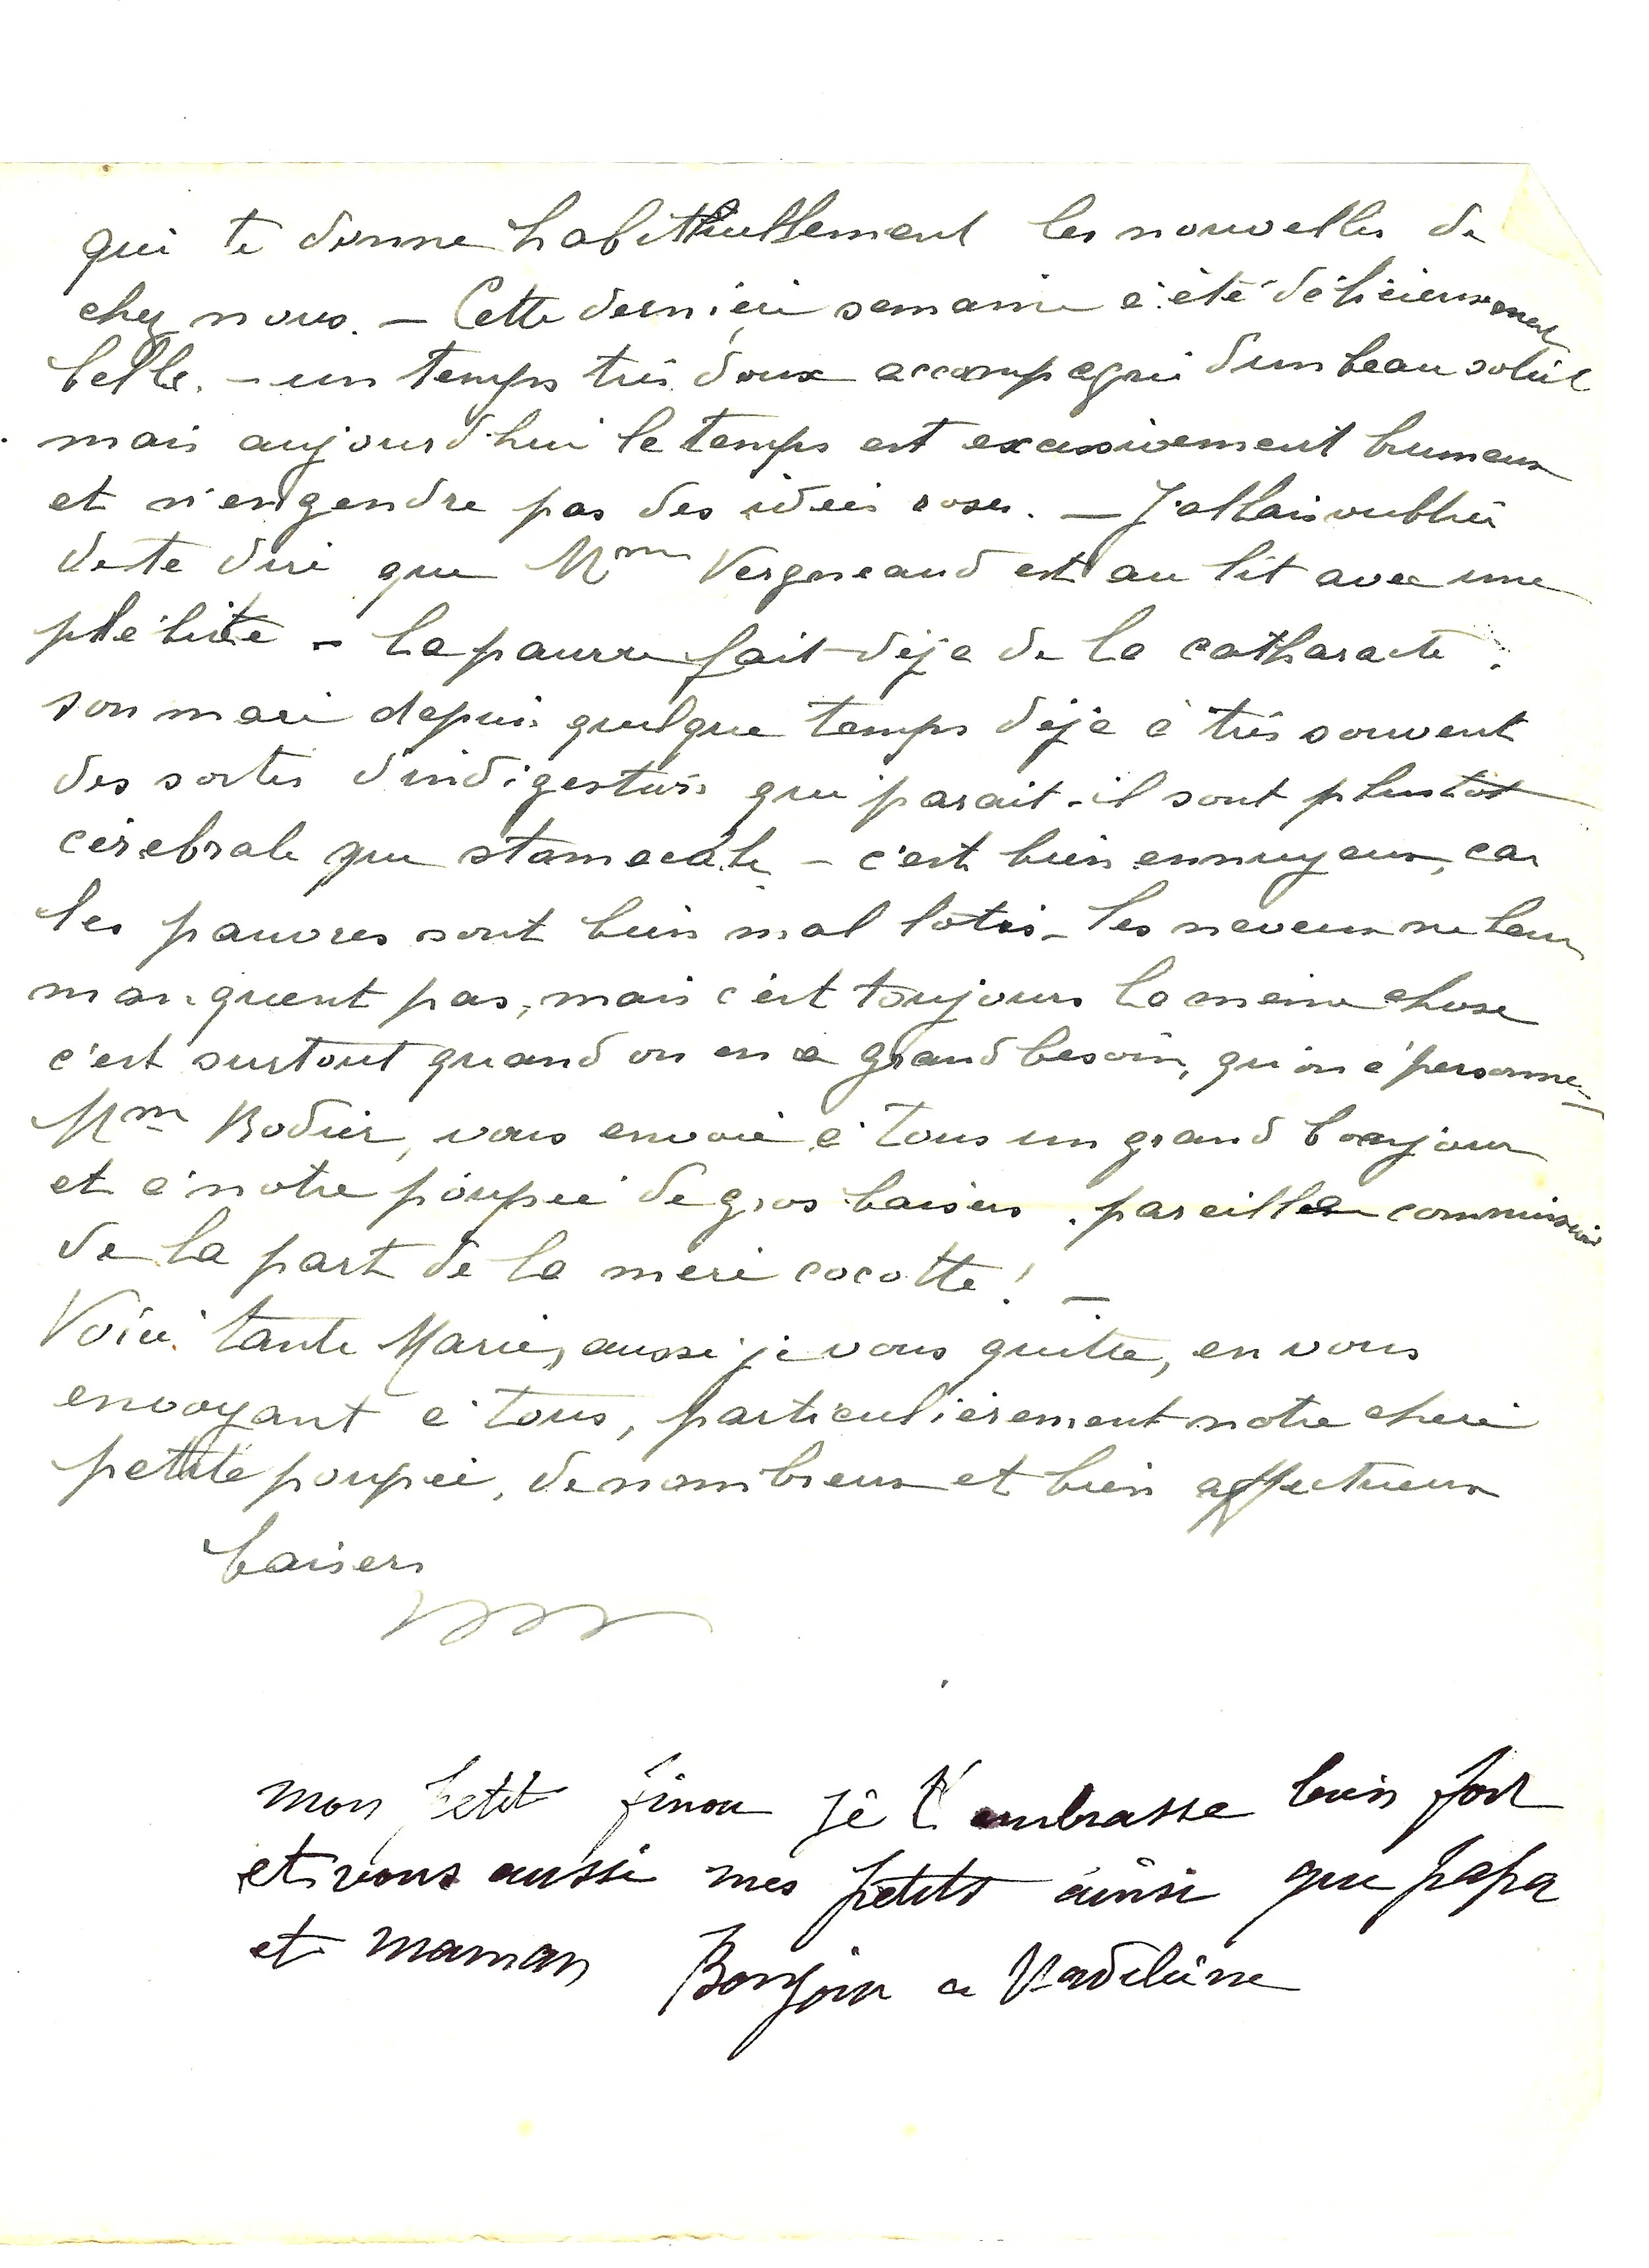 qui te donne habithuellement les nouvelles de
chez nous. — Cette dernière semaine a été délicieusement
belle. — un temps très doux accompagné d'un beau soleil
mais aujourd'hui le temps est excessivement brumeux
et n'engendre pas des idées roses. — J'allais oublier
de te dire que Mme Vergneaud est au lit avec une
plébite — la pauvre fait déjà de la catharacte.
son mari depuis quelque temps déjà à très souvent
des sortes d'indigestions qui parait-il sont plustôt
cérébrale que stomacale — c'est bien ennuyeux, car
les pauvres sont bien mal lotis — les neveux ne leur
manquent pas, mais c'est toujours la même chose
c'est surtout quand on en a grand besoin, qu'on a personne —
Mme Bodier, vous envoie à tous un grand bonjour
et à notre poupée de gros baisers. pareille commission
de la part de la mère cocotte! —
Voici tante Marie, aussi je vous quitte, en vous
envoyant à tous, particulièrement notre chère
petite poupée, de nombreux et bien affectueux
baisers
mon petit finou je t'embrasse bien fort
et vous aussi mes petits ainsi que papa
et maman Bonjour a Madeleine